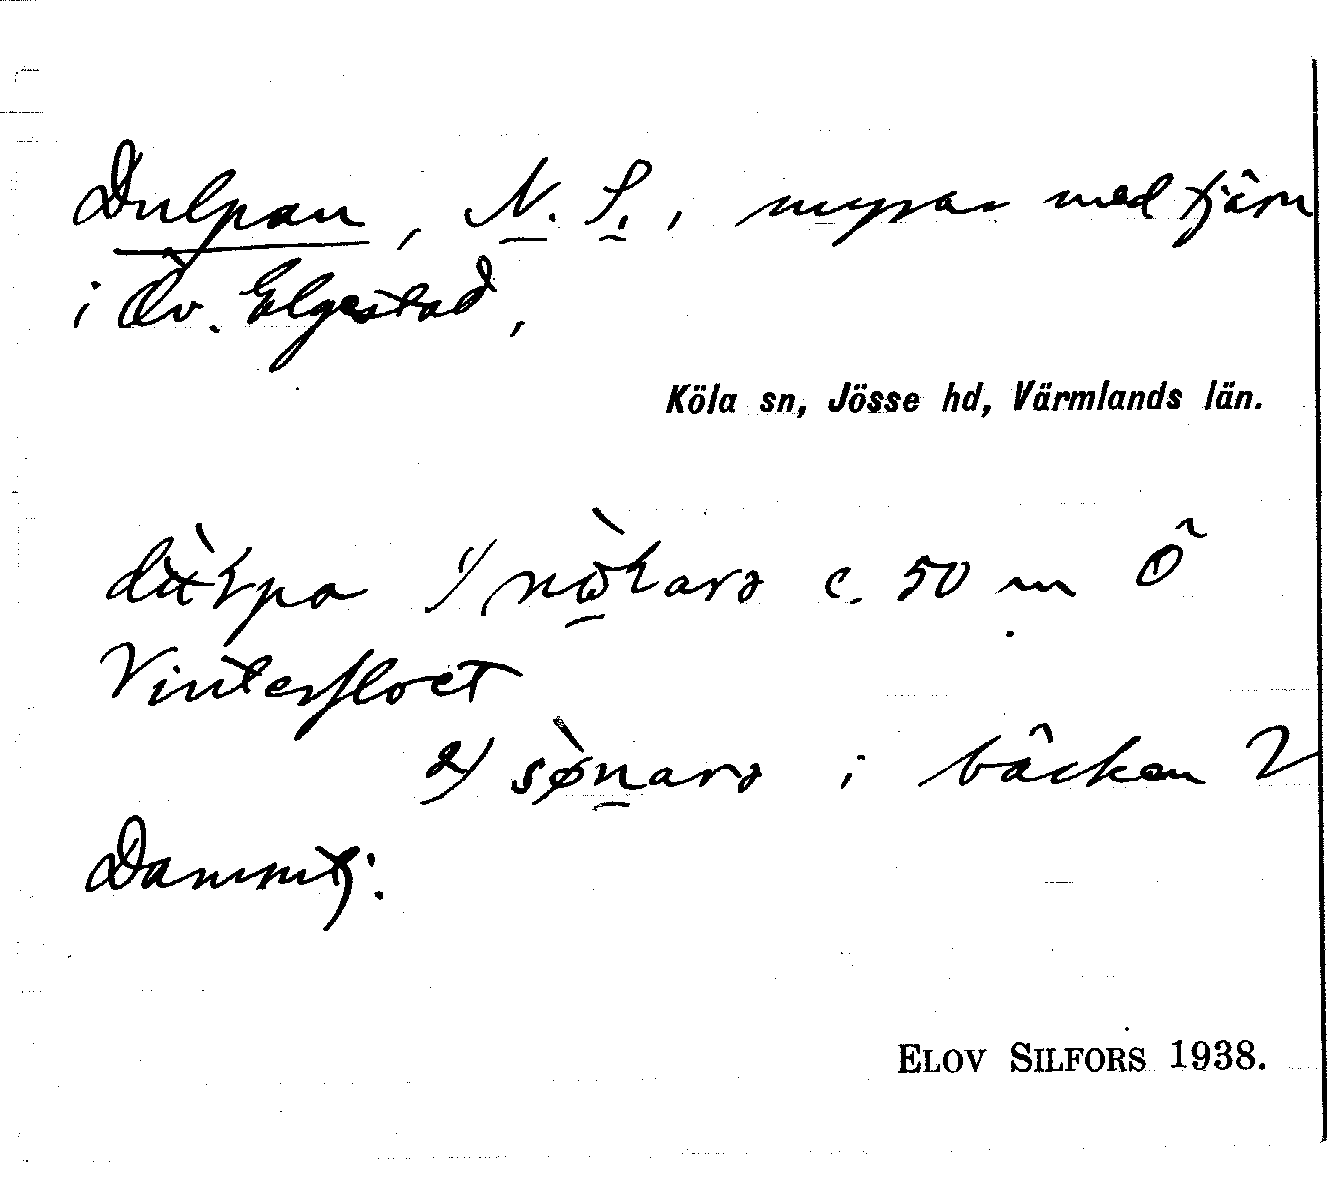 Dulpan, N. S., myrar med tjärn
i Öv. Elgestad,
Köla sn, Jösse hd, Värmlands län.
1/ c. 50 m Ö
Vinterfloet
2/ i bäcken V
Dammtj.
ELOV SILFORS 1938.